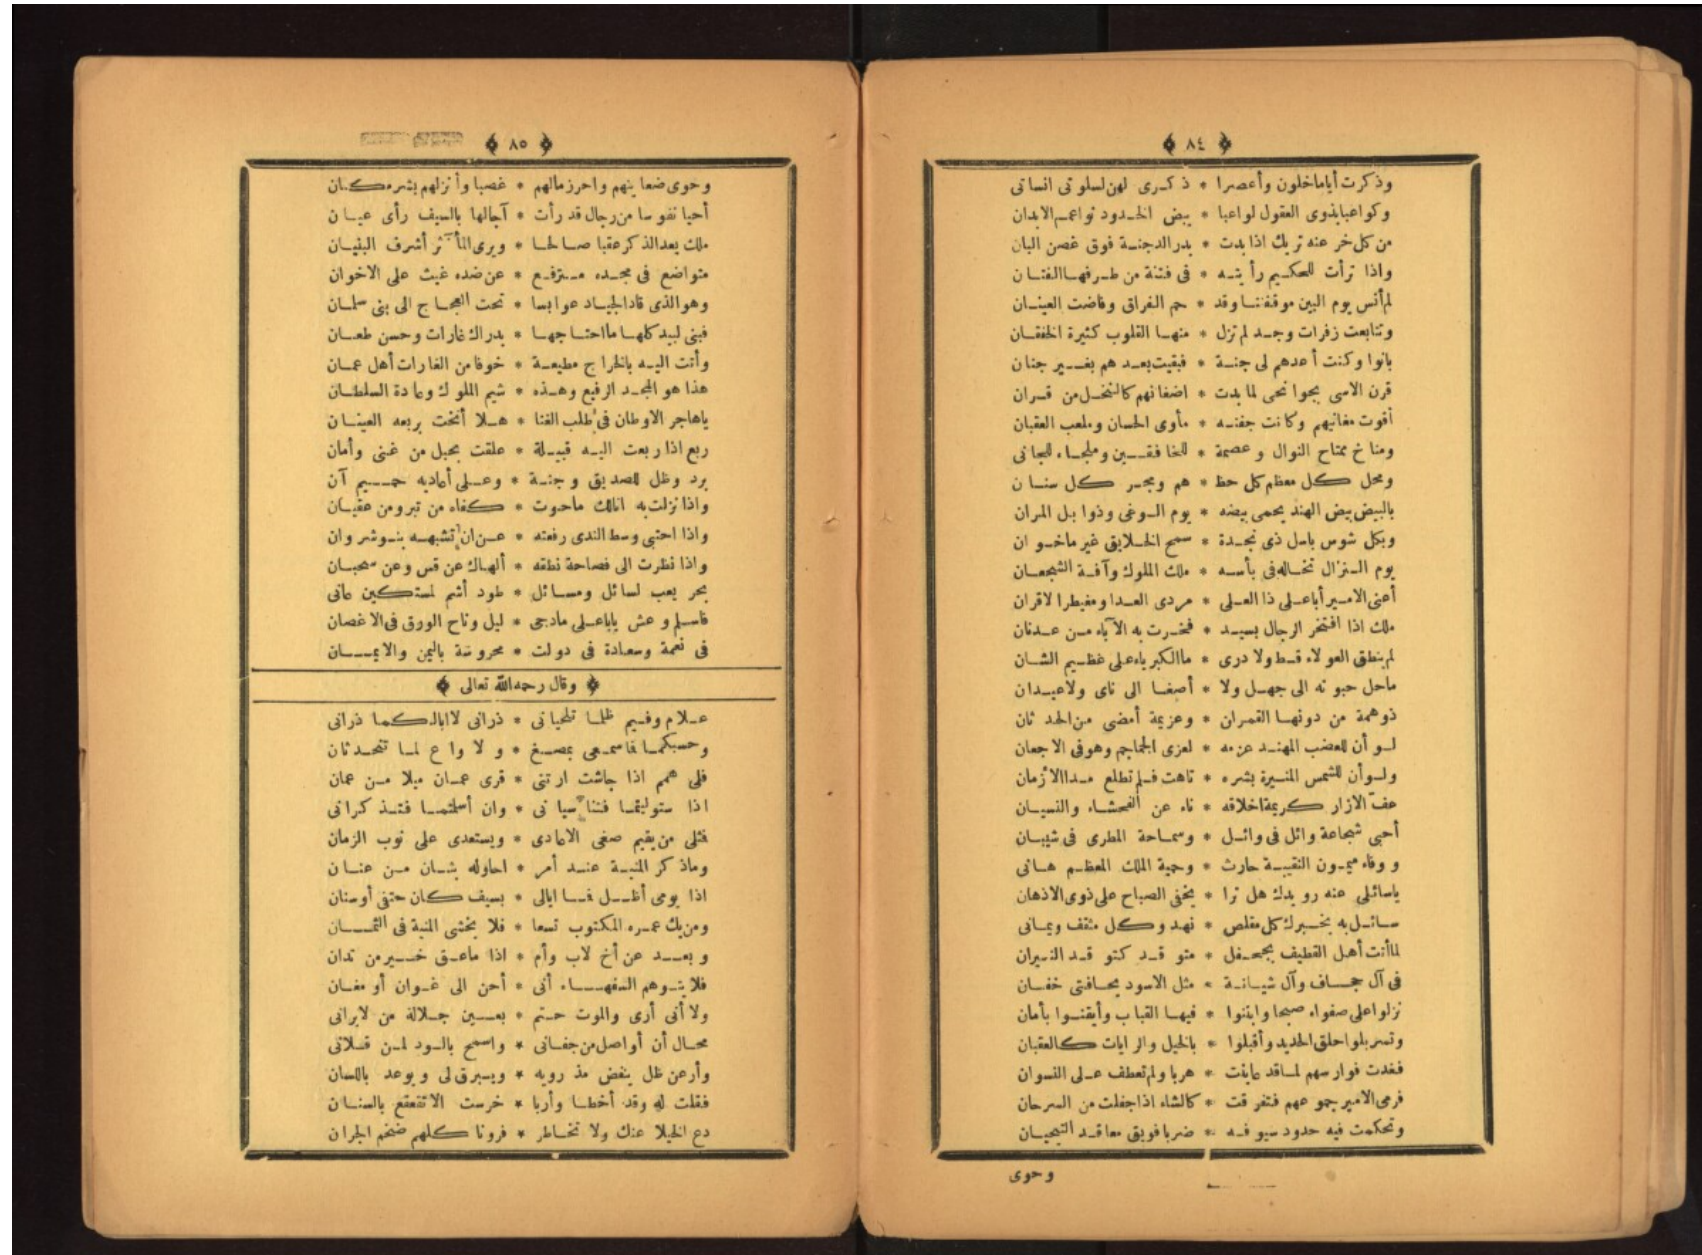 ﴿ ٨٤ ﴾
وذكرت أياما خلون وأعصرا * ذكرى لهن لسلوتى انساتى
وكواعبا بذوى العقول لواعبا * بيض الخدود نواعم الابدان
من كل خر عنه تريك اذا بدت * بدر الدجنة فوق غصن البان
واذا ترأت للحكيم رأيته * فى فتنة من طرفها الفتان
لم أنس يوم البين موقفنا وقد * حم الفراق وفاضت العينان
وتتابعت زفرات وجد لم تزل * منها القلوب كثيرة الخفقان
بانوا وكنت أعدهم لى جنة * فبقيت بعدهم بغير جنان
قرن الاسى بجوانحى لما بدت * اضغانهم كالنخل من قران
أقوت مغانيهم وكانت جفنه * مأوى الحسان وملعب العقبان
ومناخ ممتاح النوال وعصمة * للخافقين وملجاء للجانى
ومحل كل معظم كل حظ * هم ومجر كل سنان
بالبيض بيض الهند يحمى بيضه * يوم الوغى وذوابل المران
وبكل شوس باسل ذى نجدة * سمح الخلايق غير ماخوان
يوم النزال تخاله فى بأسه * ملك الملوك وآفة الشجعان
أعنى الامير أباعلى ذا العلى * مردى العدا ومغيطرا لاقران
ملك اذا افتخر الرجال بسيد * فخرت به الآباء من عدنان
لم ينطق العولاء قط ولا درى * ما الكبرياء على عظيم الشان
ماحل حبوته الى جهل ولا * أصغا الى ناى ولا عيدان
ذوهمة من دونها القمران * وعزيمة أمضى من الحدثان
لو أن للعضب المهند عزمه * لعزى الجماجم وهو فى الاجعان
ولوأن للشمس المنيرة بشره * تاهت فلم تطلع مدا الأزمان
عف الازار كريمة اخلاقه * ناء عن الفحشاء والنسيان
أحيى شجاعة وائل فى وائل * وسماحة المطرى فى شيبان
ووفاء ميمون النقيبة حارث * وحمية الملك المعظم هانى
ياسائلى عنه رويدك هل ترا * يخفى الصباح على ذوى الاذهان
سائل به يخبرك كل مقلص * نهد وكل مثقف ويمانى
لما أنت أهل القطيف بجحفل * متوقد كتوقد النيران
فى آل جحاف وآل شيبانة * مثل الاسود بحافتى خفان
نزلوا على صفواء صبحا وابتنوا * فيها القباب وأيقنوا بأمان
وتسربلوا حلق الحديد وأقبلوا * بالخيل والرايات كالعقبان
فغدت فوارسهم لما قد عاينت * هربا ولم تعطف على النسوان
فرمى الامير جموعهم فتفرقت * كالشاء اذا جفلت من السرحان
وتحكمت فيه حدود سيوفه * ضربا فويق معاقد التيجيان
وحوى
﴿ ٨٥ ﴾
وحوى ضعاينهم واحرز مالهم * غصبا وأنزلهم بشر مكان
أحيا نفوسا من رجال قد رأت * آجالها بالسيف رأى عيان
ملك يعد الذكر عقبا صالحا * ويرى المأثر أشرف البنيان
متواضع فى مجده مترفع * عن ضده غيث على الاخوان
وهو الذى قاد الجياد عوابسا * تحت العجاج الى بنى سلمان
فبنى لبيد كلها ما احتاجها * بدراك غارات وحسن طعان
وأتت اليه بالخراج مطيعة * خوفا من الغارات أهل عمان
هذا هو المجد الرفيع وهذه * شيم الملوك وعادة السلطان
ياهاجر الاوطان فى طلب الغنا * هلا أنخت بربعه العينان
ربع اذا ربعت اليه قبيلة * علقت بحبل من غنى وأمان
برد وظل للصديق وجنة * وعلى أعاديه حميم آن
واذا نزلت به انالك ماحوت * كفاه من تبر ومن عقيان
واذا احتبى وسط الندى رفعته * عن ان تشبهه بنوشروان
واذا نظرت الى فصاحة نطقه * ألهاك عن قس وعن سحبان
بحر يعب لسائل ومسائل * طود أشم لمستكين عانى
فاسلم وعش ياباعلى مادجى * ليل وناح الورق فى الاغصان
فى نعمة وسعادة فى دولت * محروسة باليمن والايمان
﴿ وقال رحمه الله تعالى ﴾
علام وفيم ظلما تلحيانى * ذرانى لا ابالكما ذرانى
وحسبكما فاسمعى بمصغ * ولا واع لما تتحدثان
فلى همم اذا جاشت ارتنى * قرى عمان ميلا من عمان
اذا ستوليتما فتناسيانى * وان أسلمتما فتذكرانى
فثلى من يقيم صغى الاعادى * ويستعدى على نوب الزمان
وماذكر المنية عند أمر * احاوله بثان من عنان
اذا يومى أظل فما ابالى * بسيف كان حتفى أوسنان
ومن يك عمره المكتوب تسعا * فلا يخشى المنية فى الثمان
وبعد عن أخ لاب وأم * اذا ماعق خير من تدان
فلا يتوهم السفهاء أنى * أحن الى غوان أو مغان
ولا أنى أرى والموت حتم * بعين جلالة من لايرانى
محال أن أواصل من جفانى * واسمح بالود لمن قلانى
وأرعن ظل ينغض مذ رويه * ويبرق لى ويوعد باللسان
فقلت له وقد أخطا وأربا * خرست الا تقعقع بالسنان
دع الخيلا عنك ولا تخاطر * فرونا كلهم ضخم الجران